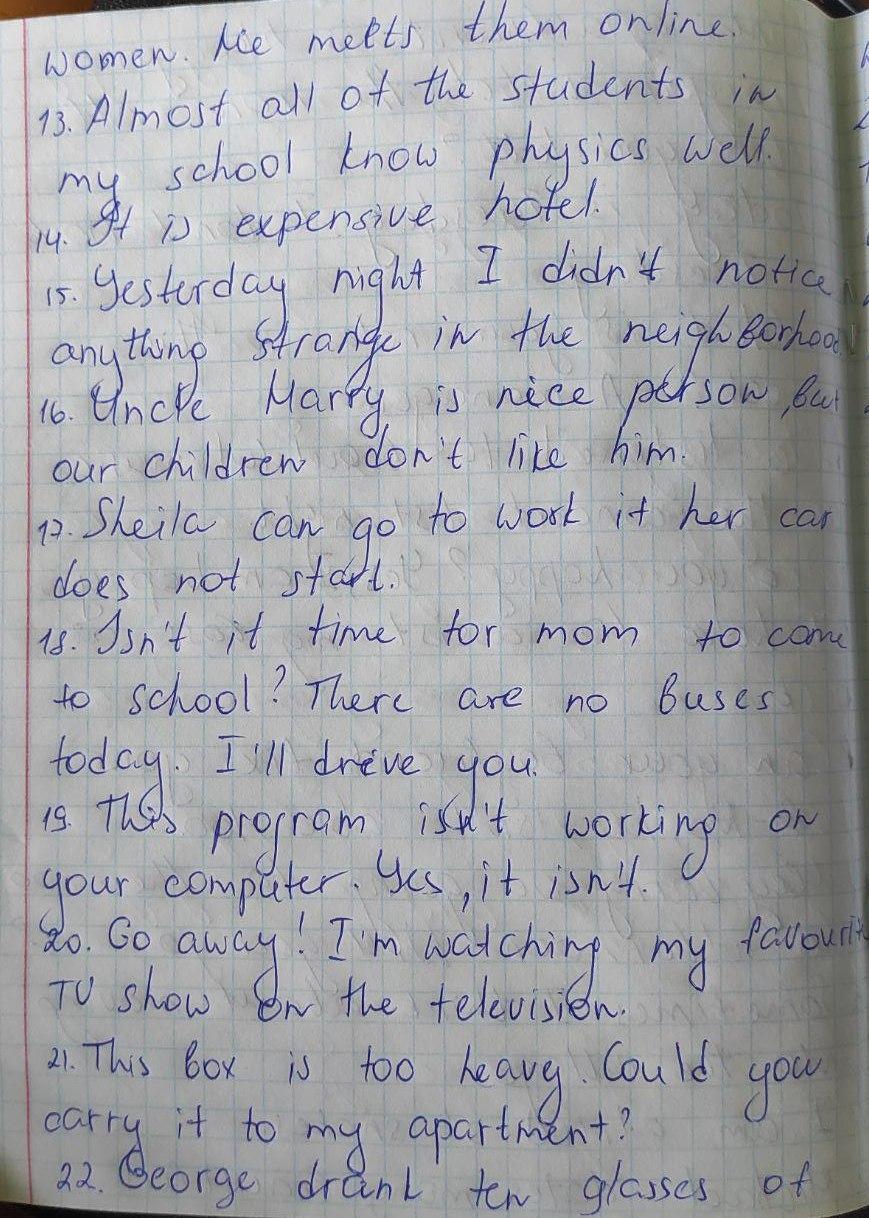 women. He meets them online.
13. Almost all of the students in
my school know physics well.
14. It is expensive hotel.
15. Yesterday night I didn't notice
anything strange in the neighborhood
16. Uncle Harry is nice person, but
our children don't like him.
17. Sheila can go to work if her car
does not start.
18. Isn't it time for mom to come
to school? There are no buses
today. I'll drive you.
19. This program isn't working on
your computer. Yes, it isn't.
20. Go away! I'm watching my favourit
TV show on the television.
21. This box is too heavy. Could you
carry it to my apartment?
22. George drank ten glasses of